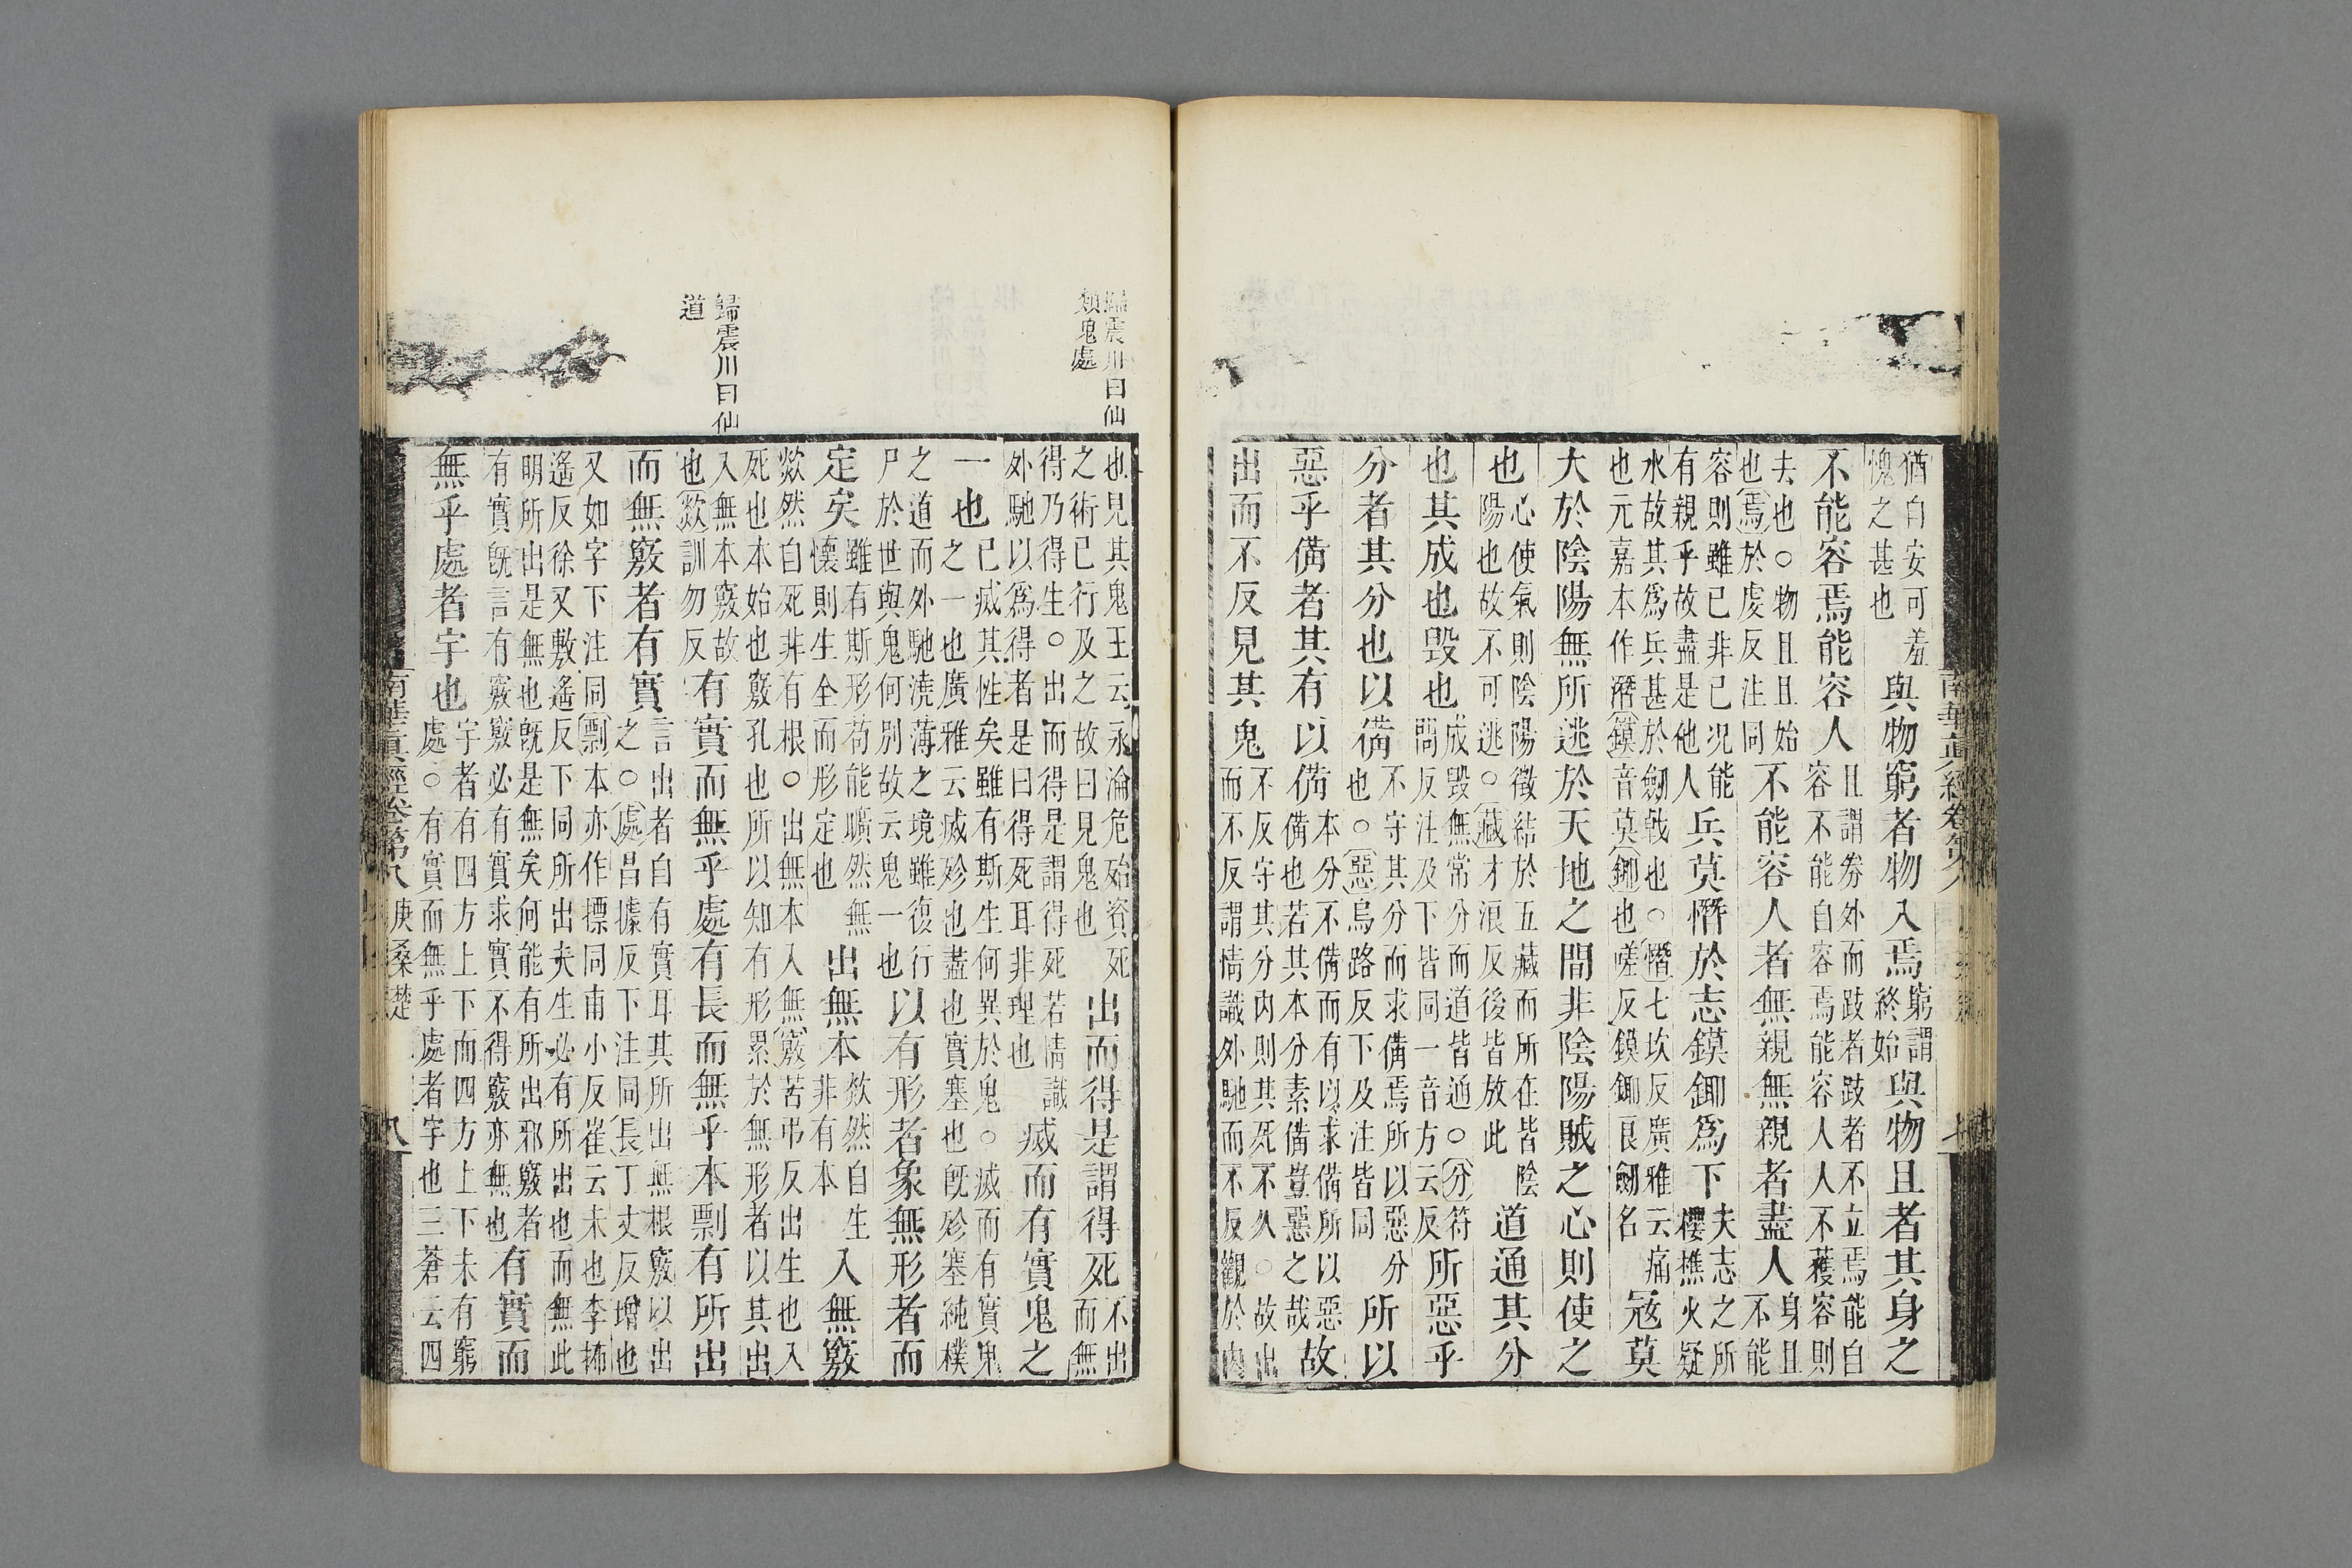 南華眞經卷第八 七
猶自安可羞愧之甚也與物窮者物入焉窮謂終始與物且者其身之
不能容焉能容人且謂劵外而跂者跂者不立焉能自容不能自容焉能容人人不獲容則
夫也○物且且始也焉於虔反注同不能容人者無親無親者盡人身且不能
容則雖已非已况能有親乎故盡是他人兵莫憯於志鏌鋣爲下夫志之所櫻樵火疑
水故其爲兵甚於劒戟也○憯七坎反廣雅云痛也元嘉本作潛鏌音莫鋣也嗟反鏌鋣良劒名寇莫
大於陰陽無所逃於天地之間非陰陽賊之心則使之
也心使氣則陰陽徵結於五藏而所在皆陰陽也故不可逃○藏才浪反後皆放此道通其分
也其成也毀也成毀無常分而道皆通○分符問反注及下皆同一音方云反所惡乎
分者其分也以備不守其分而求備焉所以惡分也○惡烏路反下及注皆同所以
惡乎備者其有以備本分不備而有以求備所以惡備也若其本分素備豈惡之哉故
出而不反見其鬼不反守其分内則其死不久○故出而不反謂情識外馳而不反觀於内
歸震川曰仙
類鬼處
歸震川曰仙
道
也見其鬼王云永淪危殆資死之術已行及之故曰見鬼也出而得是謂得死不出而無
得乃得生○出而得是謂得死若情識外馳以爲得者是曰得死耳非理也滅而有實鬼之
一也已滅其性矣雖有斯生何異於鬼○滅而有實鬼之一也廣雅云滅殄也盡也實塞也旣殄塞純樸
之道而外馳澆薄之境雖復行尸於世與鬼何別故云鬼一也以有形者象無形者而
定矣雖有斯形苟能曠然無懷則生全而形定也出無本欻然自生非有本入無竅
欻然自死非有根○出無本入無竅苦弔反出生也入死也本始也竅孔也所以知有形累於無形者以其出
入無本竅故也欻訓勿反有實而無乎處有長而無乎本剽有所出
而無竅者有實言出者自有實耳其所出無根竅以出之○處昌據反下注同長丁丈反增也
又如字下注同剽本亦作摽同甫小反崔云末也李怖遙反徐又敷遙反下同所出夫生必有所出也而無此
明所出是無也旣是無矣何能有所出邪竅者有實旣言有竅竅必有實求實不得竅亦無也有實而
無乎處者宇也宇者有四方上下而四方上下未有窮處○有實而無乎處者宇也三蒼云四
南華眞經卷第八 庚桑楚 八